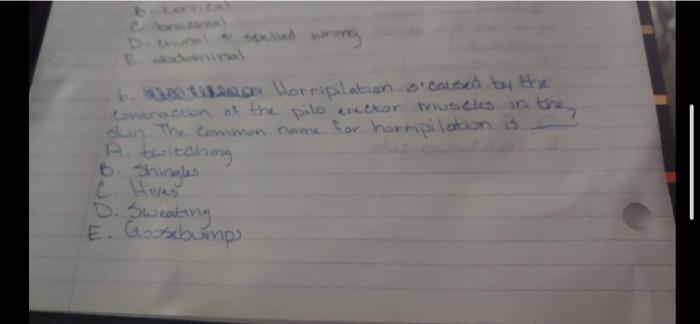 B. cervical
C. brachial
D. crural * spelled wrong
E. abdominal
6. Horripilation is caused by the
contraction of the pilo erector muscles in the
skin The common name for horripilation is ___?
A. twitching
B. Shingles
C. Hives
D. Sweating
E. Goosebumps